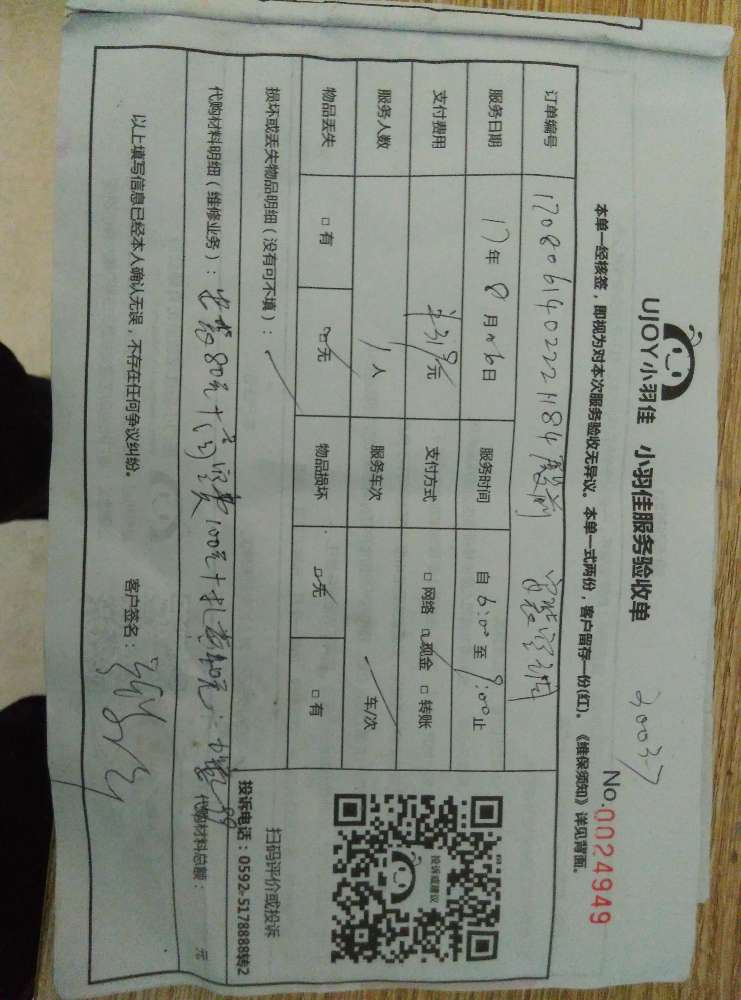 UJOY小羽佳 小羽佳服务验收单
30037
No.0024949
本单一经核签，即视为对本次服务验收无异议。本单一式两份，客户留存一份(红)。《维保须知》详见背面。
订单编号
服务日期 17年8月6日 服务时间 自6:00至9:00止
支付费用 319元 支付方式 □网络 □现金 □转账
服务人数 1人 服务车次 车/次
物品丢失 □有 □无 物品损坏 □无 □有
损坏或丢失物品明细（没有可不填）：
代购材料明细（维修业务）： 80元+ 100元+ 代购材料总额： 元
以上填写信息已经本人确认无误，不存在任何争议纠纷。 客户签名：
投诉或建议
扫码评价或投诉
投诉电话：0592-5178888转2